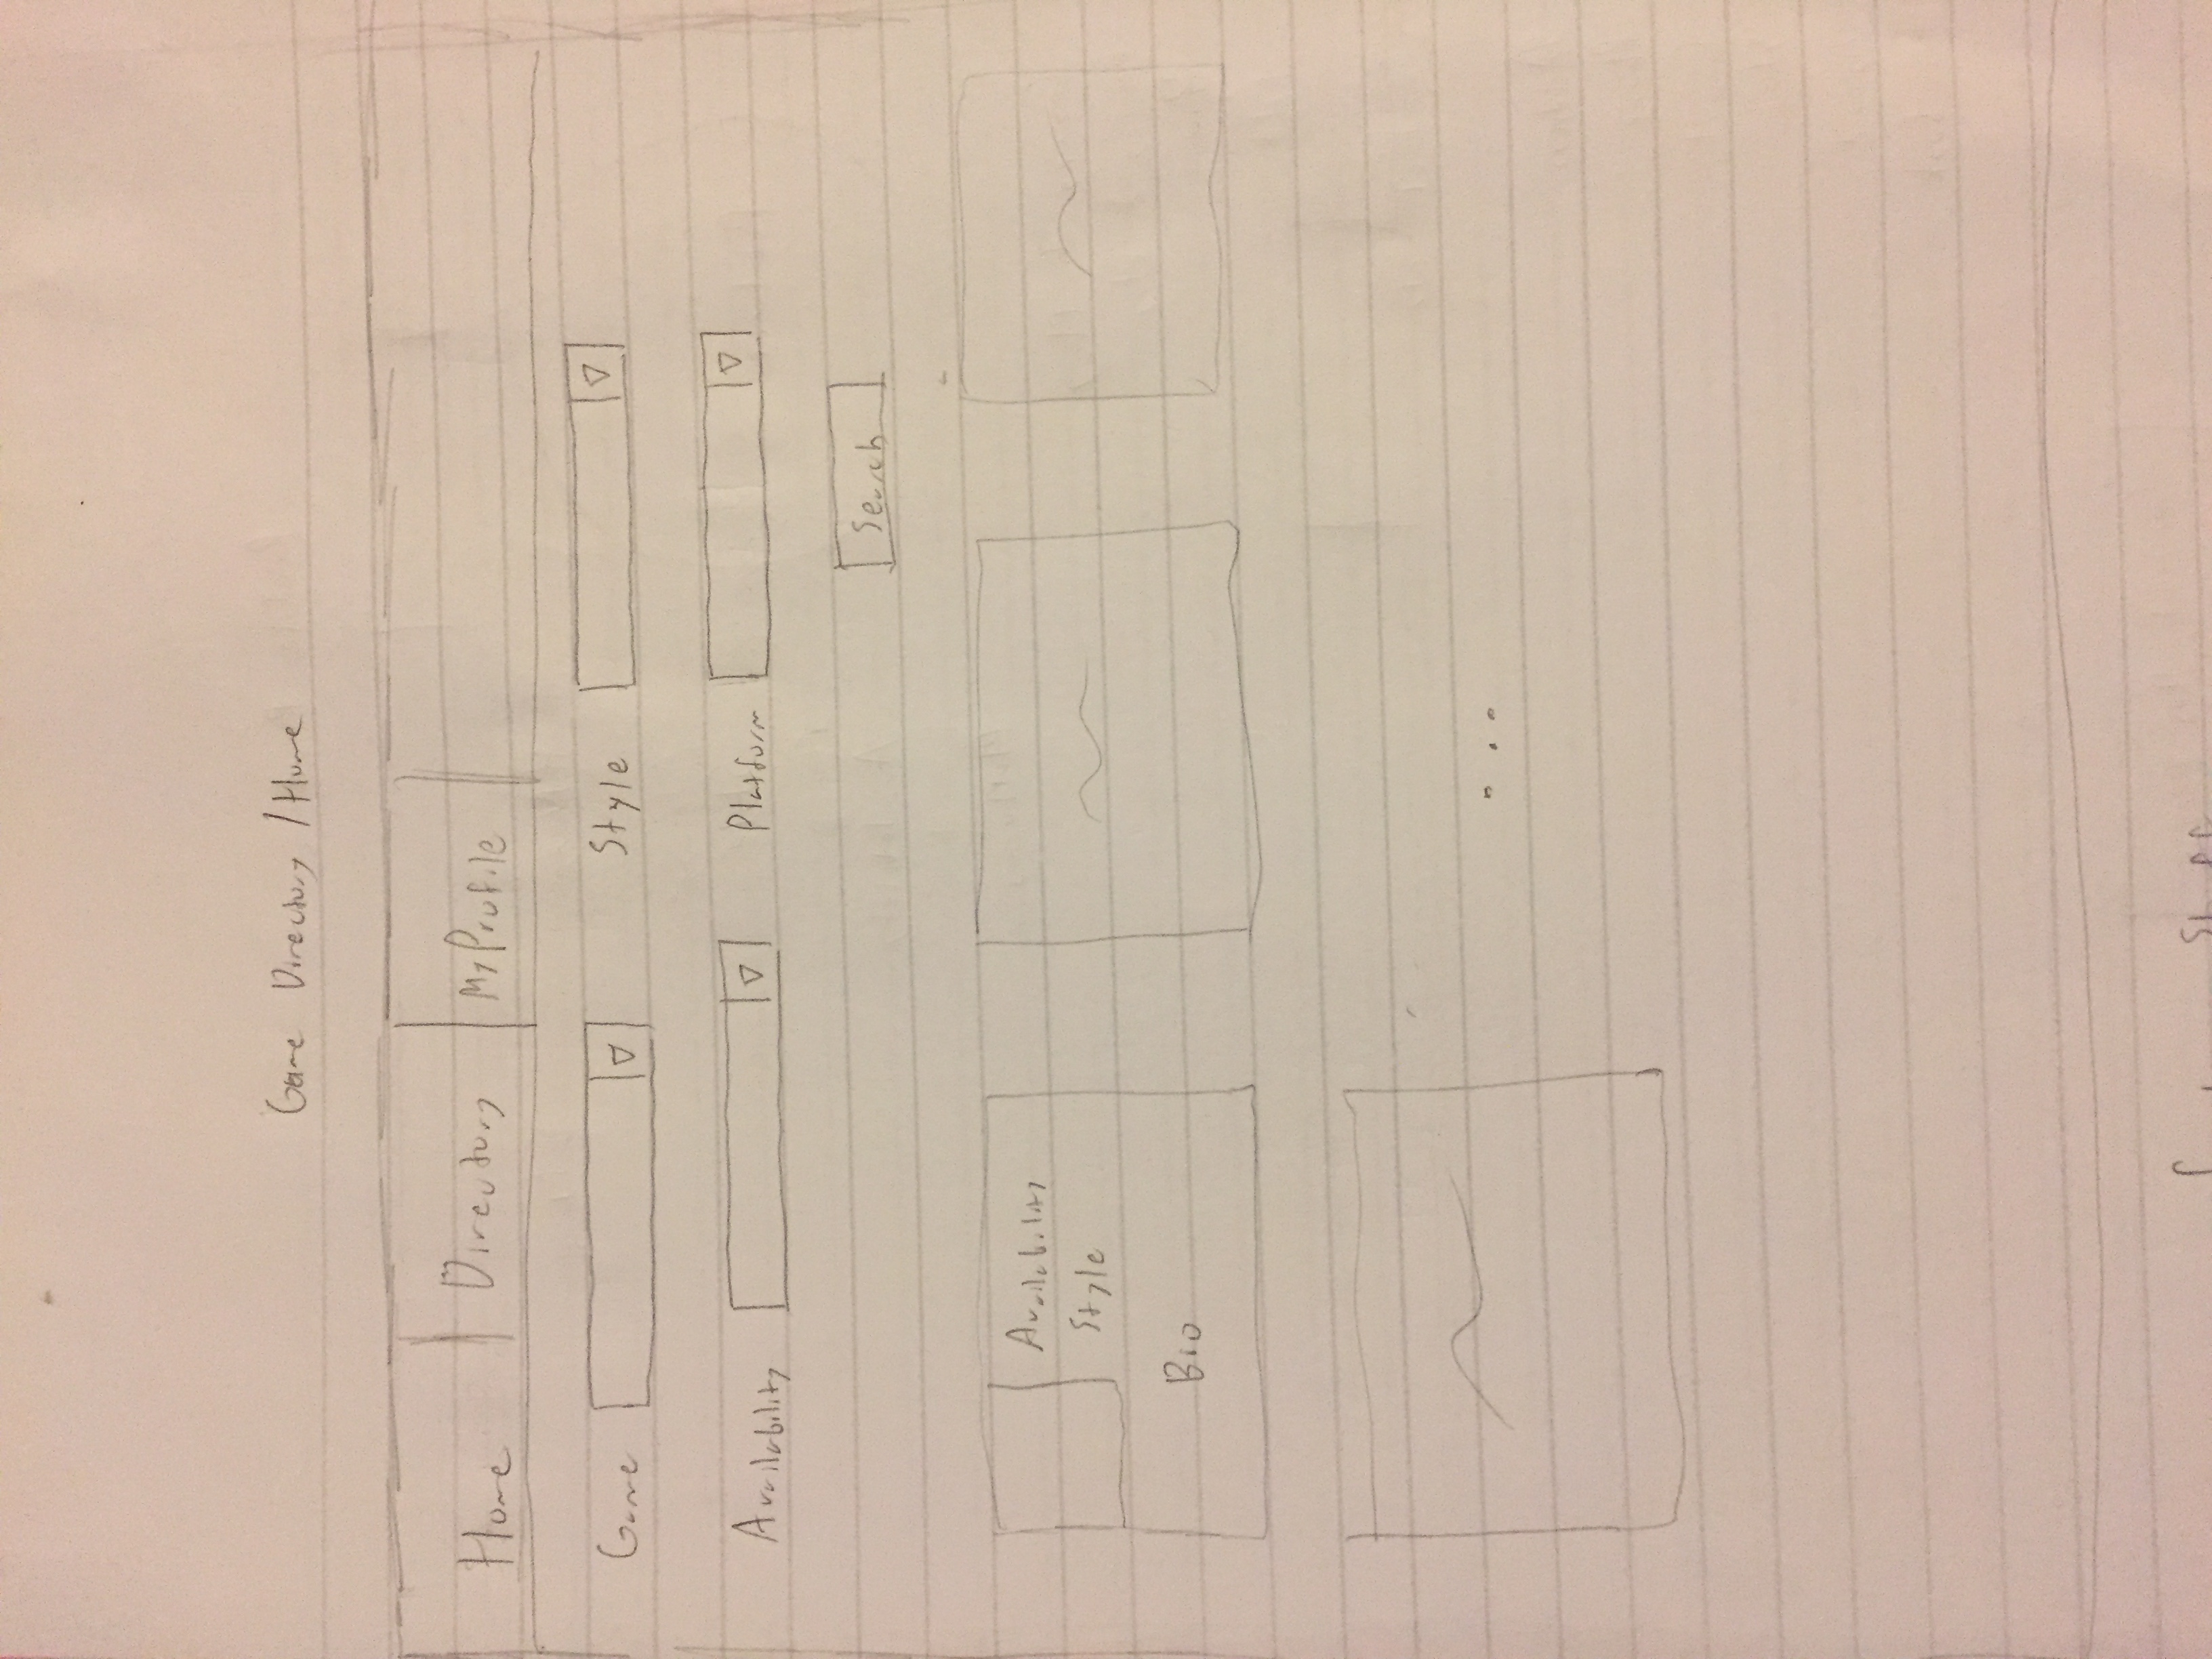 Game Directory / Home
Home Directory My Profile
Game Style
Availability Platform
Search
Availability
Style
Bio
...